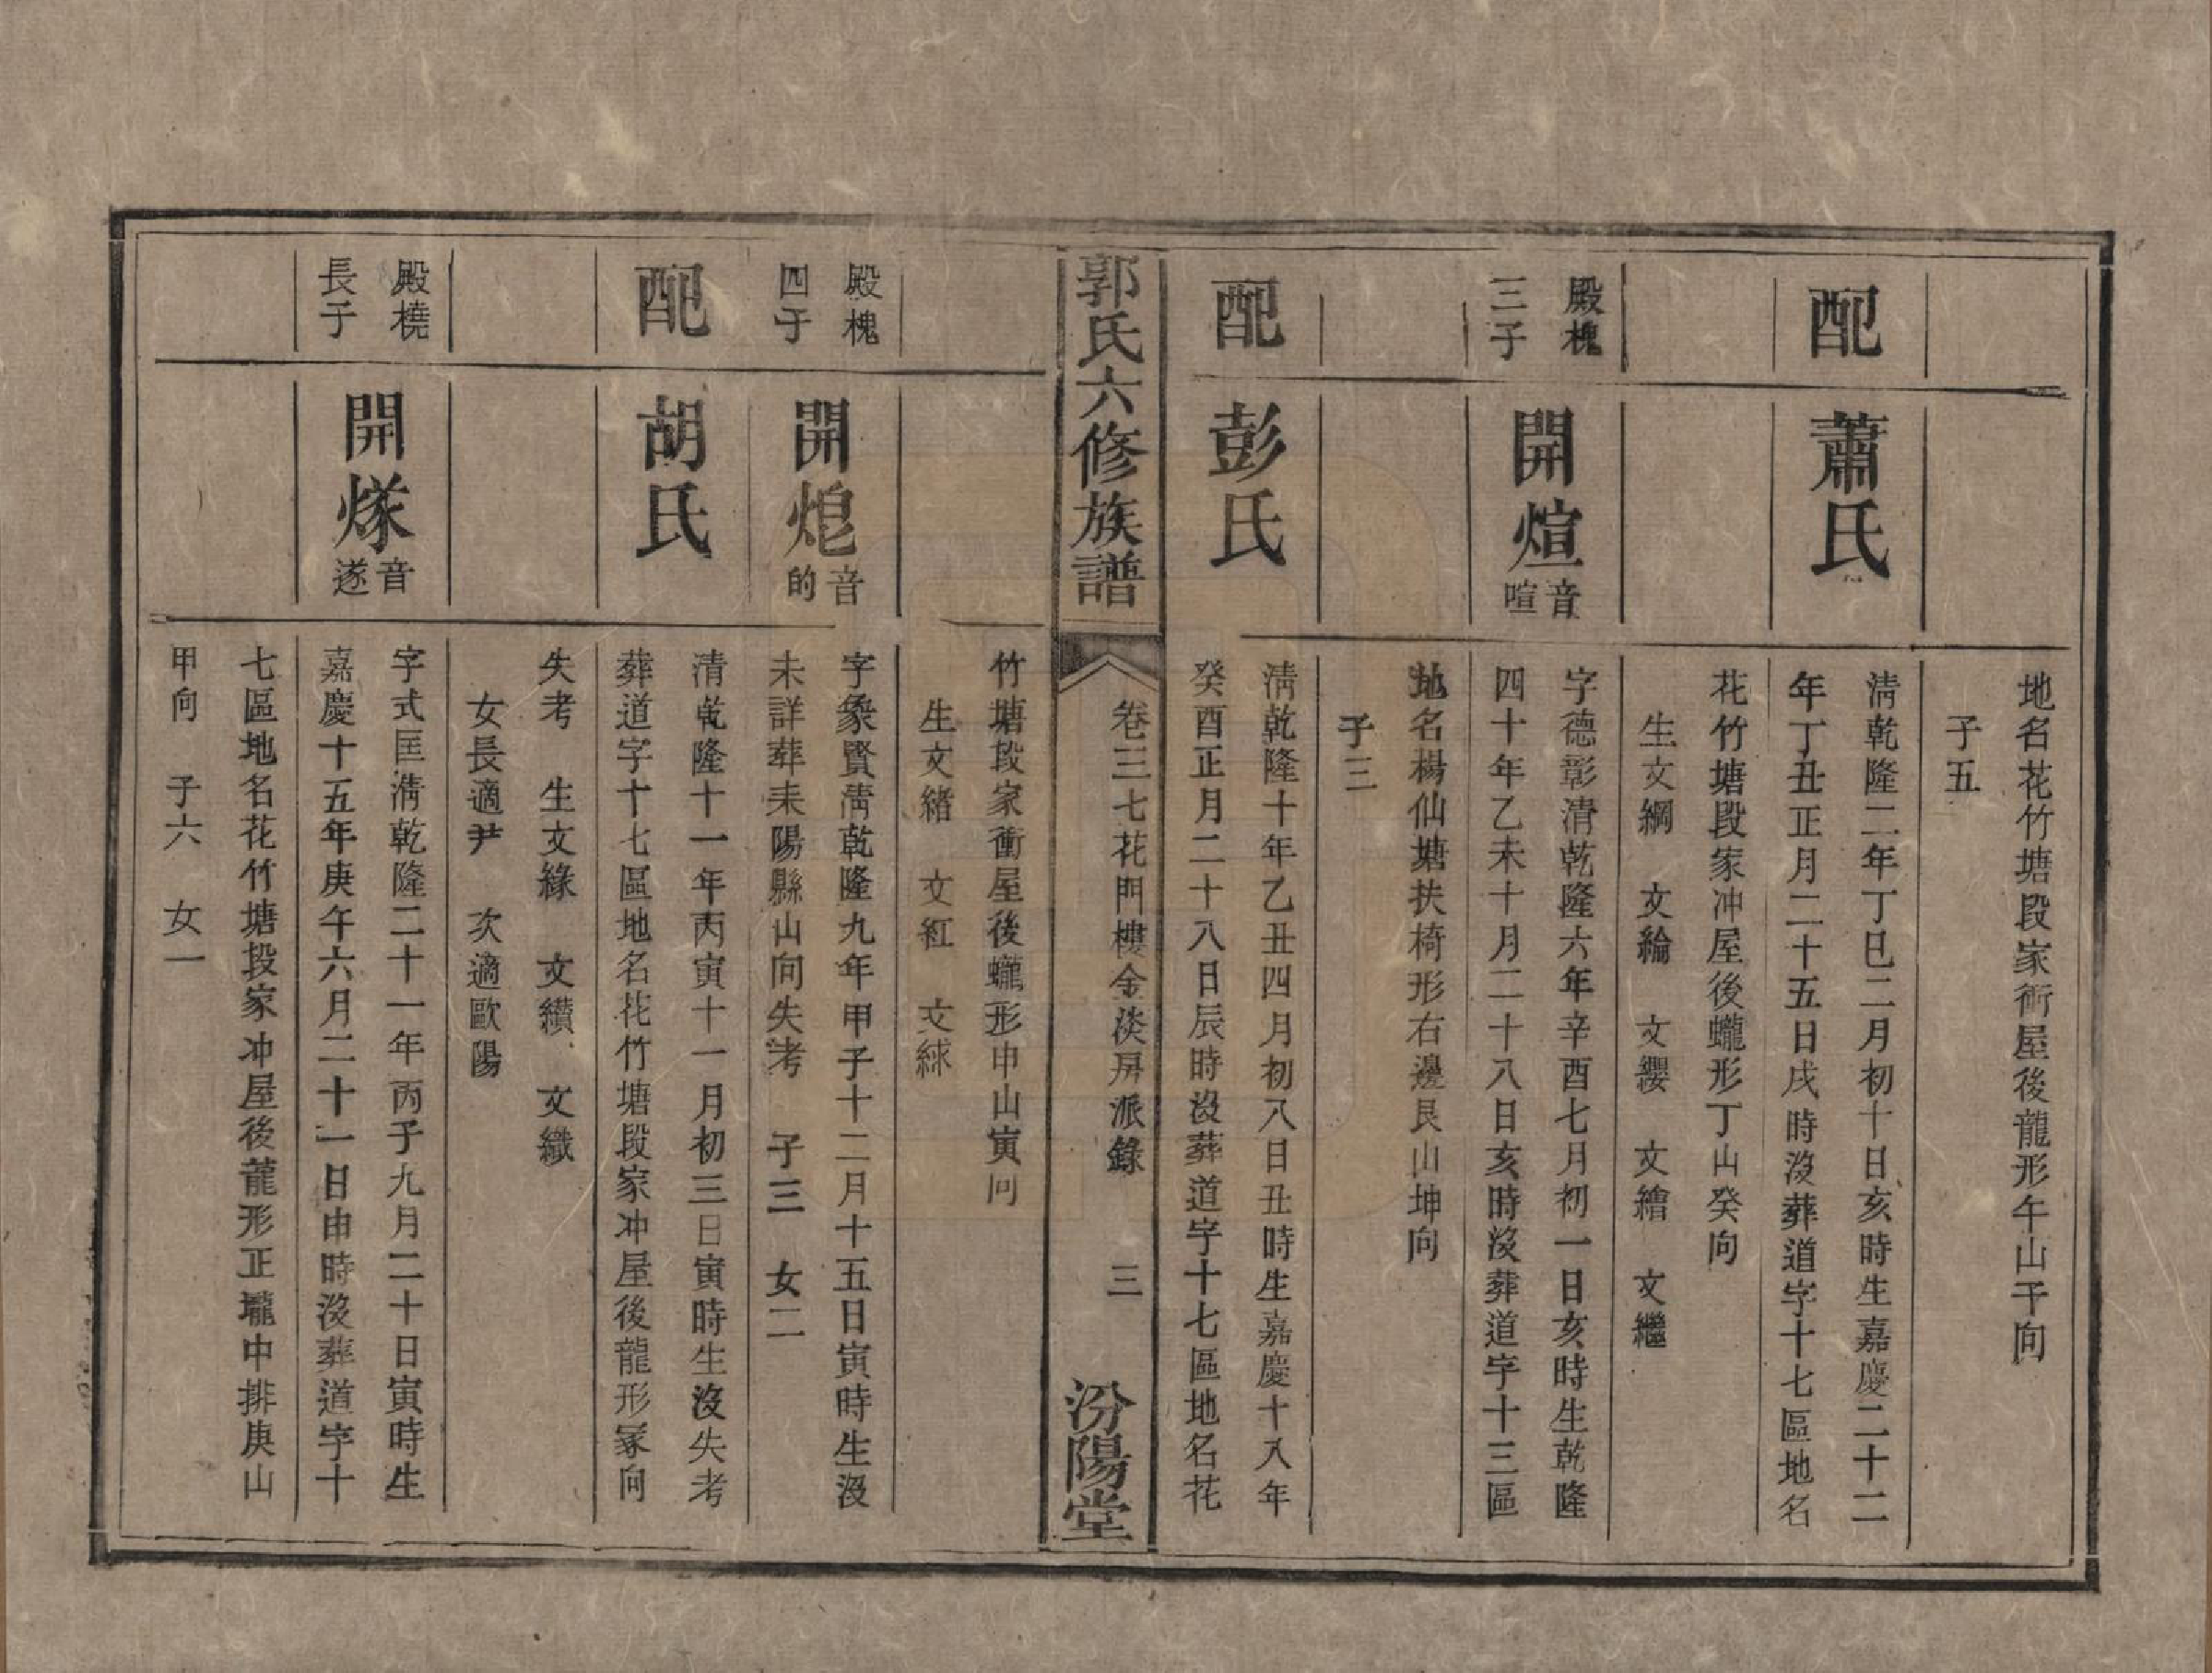 地名花竹塘段家衝屋後龍形午山子向
子五
配
蕭氏
清乾隆二年丁巳二月初十日亥時生嘉慶二十二
年丁丑正月二十五日戌時沒葬道字十七區地名
花竹塘段家冲屋後蠬形丁山癸向
生文綱　文綸　文纓　文繪　文繼
殿槐
三子
開煊
音
喧
字德彰清乾隆六年辛酉七月初一日亥時生乾隆
四十年乙未十月二十八日亥時沒葬道字十三區
地名楊仙塘扶椅形右邊艮山坤向
子三
配
彭氏
清乾隆十年乙丑四月初八日丑時生嘉慶十八年
癸酉正月二十八日辰時沒葬道字十七區地名花
郭氏六修族譜
卷三七花門樓金淡房派錄
三
汾陽堂
竹塘段家衝屋後蠬形申山寅向
生文緒　文紅　文絿
殿槐
四子
開炮
音
的
字象賢清乾隆九年甲子十二月十五日寅時生沒
未詳葬耒陽縣山向失考　子三　女二
配
胡氏
清乾隆十一年丙寅十一月初三日寅時生沒失考
葬道字十七區地名花竹塘段家冲屋後龍形冢向
失考　生文緣　文纘　文織
女長適尹　次適歐陽
殿橈
長子
開燧
音
遂
字式匡清乾隆二十一年丙子九月二十日寅時生
嘉慶十五年庚午六月二十一日申時沒葬道字十
七區地名花竹塘段家冲屋後龍形正壠中排庚山
甲向　子六　女一